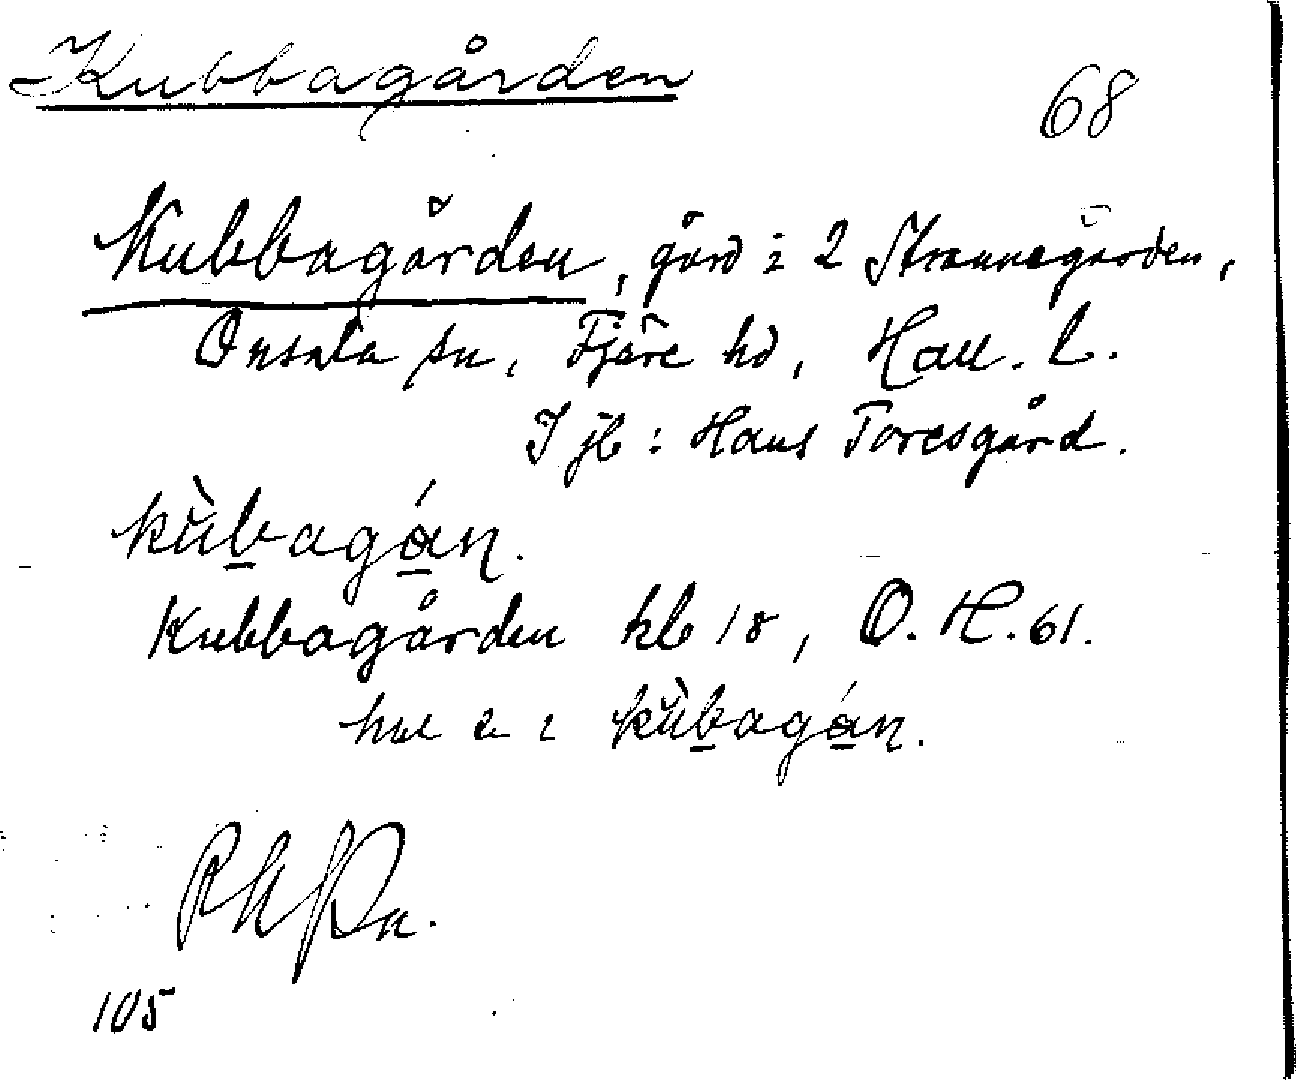 Kubbagården
68
Kubbagården, gård i 2 Strannegården,
Onsala sn, Fjäre hd, Hall. L.
I jb: Hans Toresgård.
kùbagán.
Kubbagården kb 18, O. H. 61.
kùbagán.
105